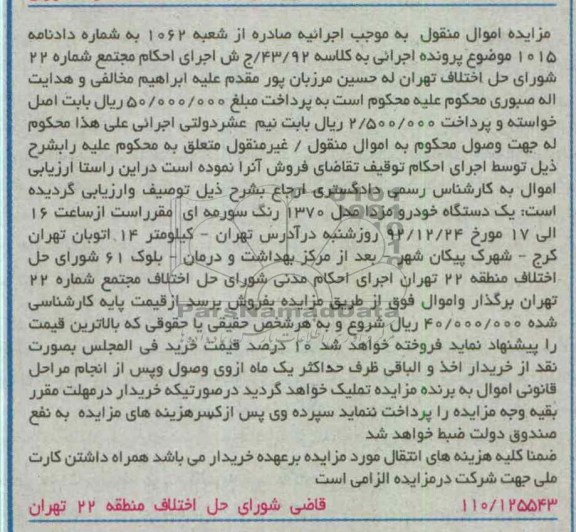 مزایده اموال منقول به موجب اجرائیه صادره از شعبه ۱۰۶۲ به شماره دادنامه
۱۰۱۵ موضوع پرونده اجرائی به کلاسه ۴۳/۹۲/ج ش اجرای احکام مجتمع شماره ۲۲
شورای حل اختلاف تهران له حسین مرزبان پور مقدم علیه ابراهیم مخالفی و هدایت
اله صبوری محکوم علیه محکوم است به پرداخت مبلغ ۵۰/۰۰۰/۰۰۰ ریال بابت اصل
خواسته و پرداخت ۲/۵۰۰/۰۰۰ ریال بابت نیم عشردولتی اجرائی علی هذا محکوم
له جهت وصول محکوم به اموال منقول / غیرمنقول متعلق به محکوم علیه رابشرح
ذیل توسط اجرای احکام توقیف تقاضای فروش آنرا نموده است دراین راستا ارزیابی
اموال به کارشناس رسمی دادگستری ارجاع بشرح ذیل توصیف وارزیابی گردیده
است: یک دستگاه خودرو مزدا مدل ۱۳۷۰ رنگ سورمه ای مقرراست ازساعت ۱۶
الی ۱۷ مورخ ۹۲/۱۲/۲۴ روزشنبه درآدرس تهران - کیلومتر ۱۴ اتوبان تهران
کرج - شهرک پیکان شهر - بعد از مرکز بهداشت و درمان - بلوک ۶۱ شورای حل
اختلاف منطقه ۲۲ تهران اجرای احکام مدنی شورای حل اختلاف مجتمع شماره ۲۲
تهران برگذار واموال فوق از طریق مزایده بفروش برسد ازقیمت پایه کارشناسی
شده ۴۰/۰۰۰/۰۰۰ ریال شروع و به هرشخص حقیقی یا حقوقی که بالاترین قیمت
را پیشنهاد نماید فروخته خواهد شد ۱۰ درصد قیمت خرید فی المجلس بصورت
نقد از خریدار اخذ و الباقی ظرف حداکثر یک ماه ازوی وصول وپس از انجام مراحل
قانونی اموال به برنده مزایده تملیک خواهد گردید درصورتیکه خریدار درمهلت مقرر
بقیه وجه مزایده را پرداخت ننماید سپرده وی پس ازکسرهزینه های مزایده به نفع
صندوق دولت ضبط خواهد شد
ضمنا کلیه هزینه های انتقال مورد مزایده برعهده خریدار می باشد همراه داشتن کارت
ملی جهت شرکت درمزایده الزامی است
۱۱۰/۱۲۵۵۴۳ قاضی شورای حل اختلاف منطقه ۲۲ تهران
ParsNamadData